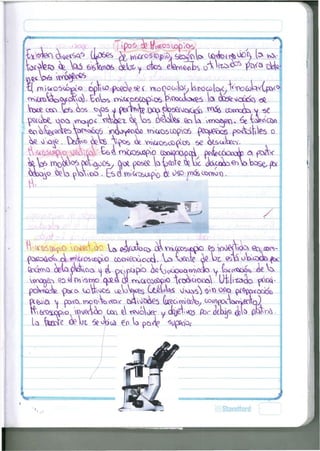 Tipos de Microscopios
Existen diversas clases de microscopio, según la la na-
turaleza de los sistemas de luz y otros elementos utilizados para obte
ner las imágenes
El microscopio óptico puede ser monocular, binocular, trinocular (para
microfotografía). En los microscopios binoculares la observación se
hace con los dos ojos y permite una observación más cómoda y se
percibe una mayor nitidez de los detalles en la imagen. Se fabrican
en diferentes tamaños incluyendo microscopios pequeños portátiles o
de viaje. Dentro de los tipos de microscopios se describen:
Microscopio vertical: Es el microscopio convencional, perfeccionado a partir
de los modelos antiguos, que posee la fuente de luz ubicada en la base, por
debajo de la platina. Es el microscopio de uso más común.
M.
Microscopio invertido: La estructura del microscopio es invertida en com-
paración al microscopio convencional. La fuente de luz está ubicada por
encima de la platina y el principio de funcionamiento y formación de la
imagen es el mismo que el del microscopio tradicional. Utilizado princi-
palmente para cultivos celulares (células vivas) sin una preparación
previa y para monitorear actividades (crecimiento, comportamiento)
Microscopio, invertido con el revólver y objetivos por debajo de la platina.
La fuente de luz se ubica en la parte superior
Standford